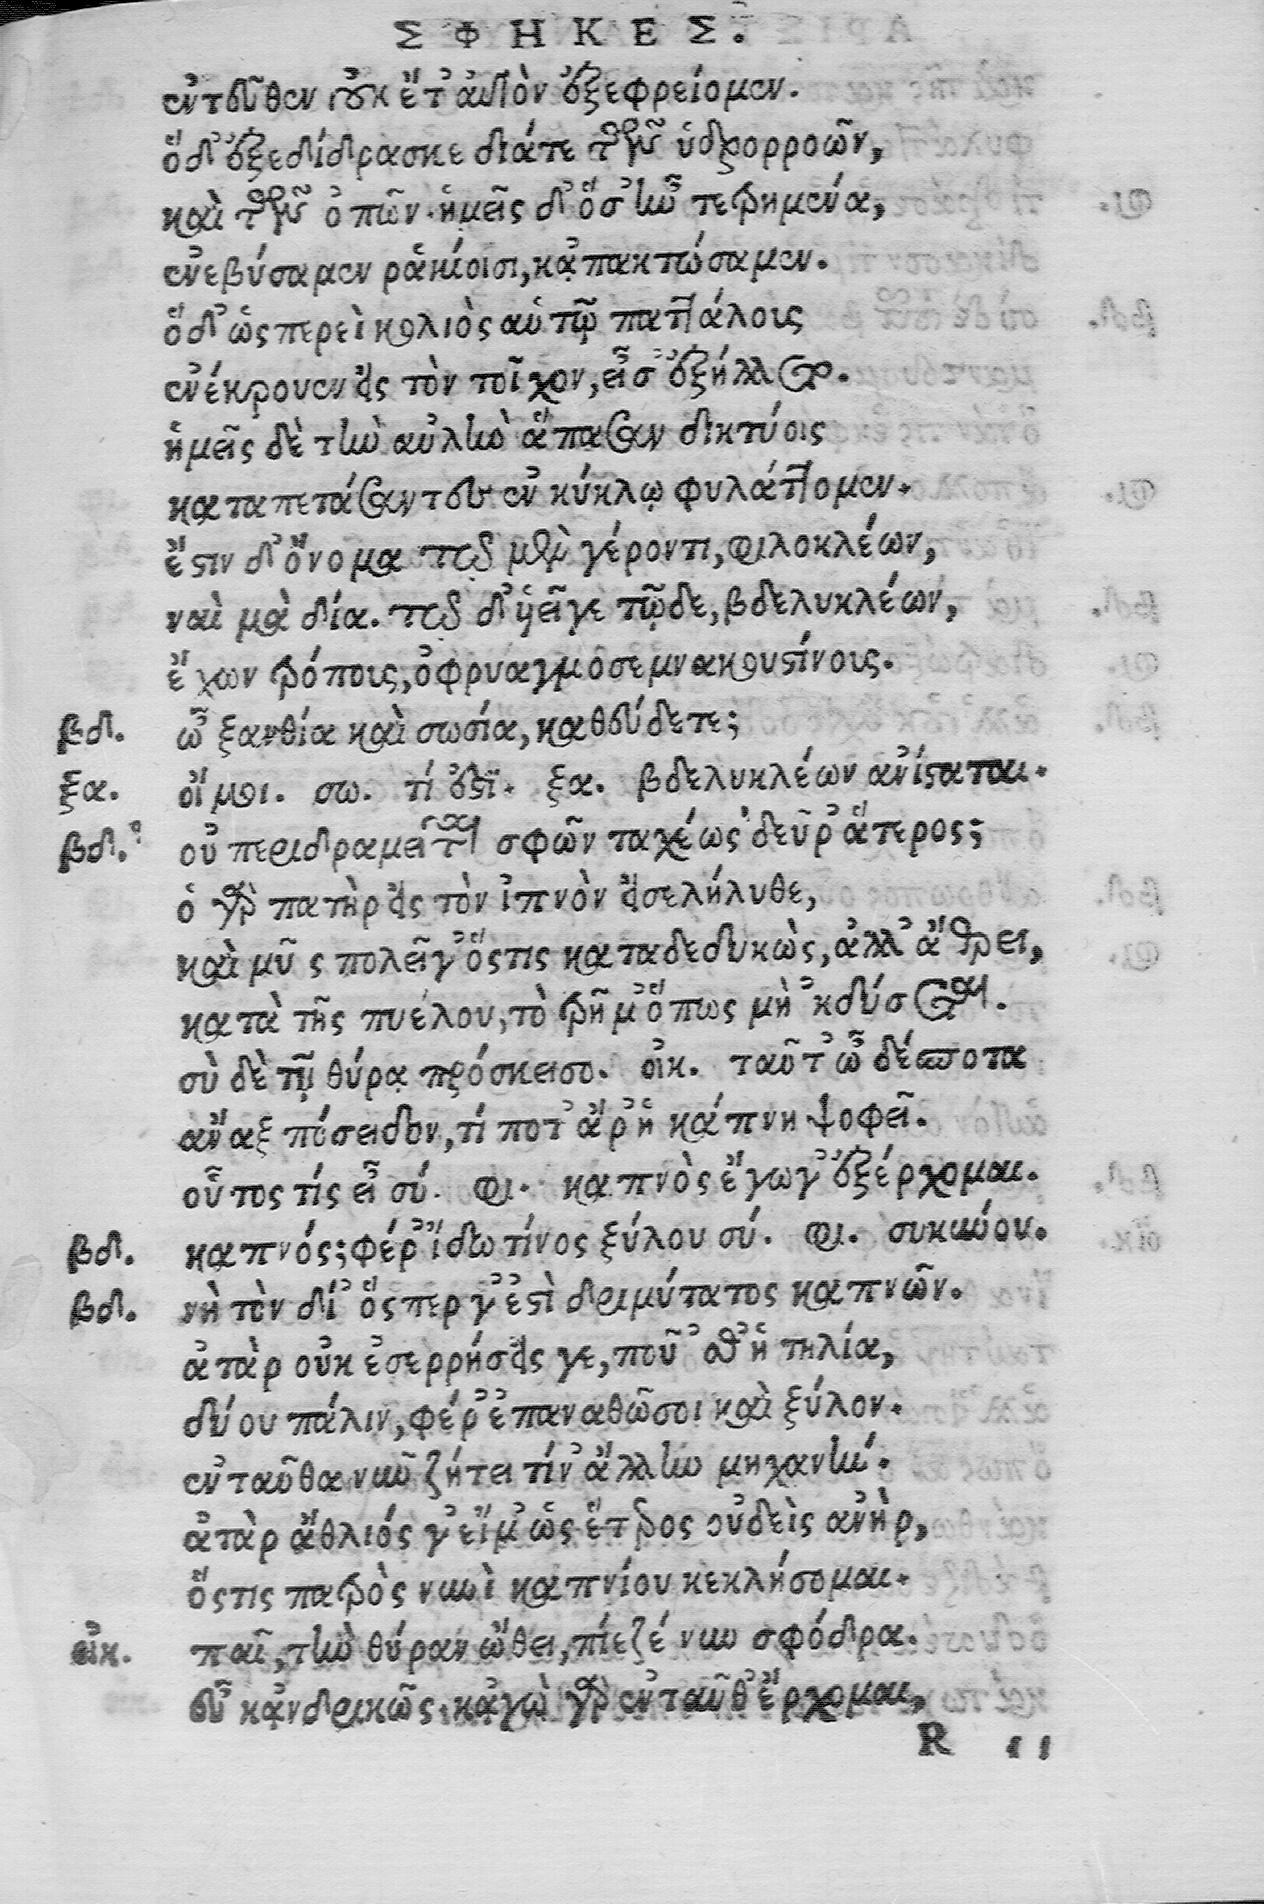 ΣΦΗΚΕΣ.
ἐντεῦθεν οὐκ ἔτ' αὐτὸν ἐξεφρείομεν.
ὅδ' ἐξεδίδρασκε διάτε τῶν ὑδρορροῶν,
καὶ τῶν ὀπῶν· ἡμεῖς δ' ὅσ' ἦν τετρημένα,
ἐνεβύσαμεν ῥακίοισι, κἀπακτώσαμεν.
ὅδ' ὡςπερεὶ κολιὸς αὑτῷ παττάλους
ἐνέκρουεν εἰς τὸν τοῖχον, εἶσ' ἐξήλλετο.
ἡμεῖς δὲ τὴν αὐλὴν ἅπασαν δικτύοις
καταπετάσαντες ἐν κύκλῳ φυλάττομεν.
ἔστιν δ' ὄνομα τῷ μὲν γέροντι, φιλοκλέων,
ναὶ μὰ δία. τῷ δ' ὑεῖγε τῷδε, βδελυκλέων,
ἔχων τρόπους, ὀφρυαγμοσεμνακουστίνους.
βδ. ὦ ξανθία καὶ σωσία, καθεύδετε;
ξα. οἴμοι. σω. τί ἐστί. ξα. βδελυκλέων ἀνίσταται.
βδ. οὐ περιδραμεῖται σφῶν ταχέως δεῦρ' ἅτερος;
ὁ γὰρ πατὴρ εἰς τὸν ἰπνὸν εἰσελήλυθε,
καὶ μῦς πολεῖγ' ὅςτις καταδεδυκὼς, ἀλλ' ἄθρει,
κατὰ τῆς πυέλου, τὸ τρῆμ' ὅπως μὴ 'κδύσεται.
σὺ δὲ τῇ θύρᾳ πρόσκεισο. οἰκ. ταῦτ' ὦ δέσποτα
ἄναξ πόσειδον, τί ποτ' ἄρ' ἡ κάπνη ψοφεῖ.
οὗτος τίς εἶ σύ. φι. καπνὸς ἔγωγ' ἐξέρχομαι.
βδ. καπνός; φέρ' ἴδω τίνος ξύλου σύ. φι. συκίνου.
βδ. νὴ τὸν δί' ὅςπερ γ' ἐστὶ δριμύτατος καπνῶν.
ἀτὰρ οὐκ ἐσερρήσεις γε, ποῦ 'σθ' ἡ τηλία,
δύου πάλιν, φέρ' ἐπαναθῶσοι καὶ ξύλον.
ἐνταῦθα νῦν ζήτει τίν' ἄλλην μηχανήν.
ἀτὰρ ἄθλιός γ' εἴμ' ὡς ἕτερος οὐδεὶς ἀνὴρ,
ὅςτις πατρὸς νυνὶ καπνίου κεκλήσομαι.
οἰκ. παῖ, τὴν θύραν ὤθει, πίεζέ νυν σφόδρα.
εὖ κἀνδρικῶς· κἀγὼ γὰρ ἐνταῦθ' ἔρχομαι,
R ii